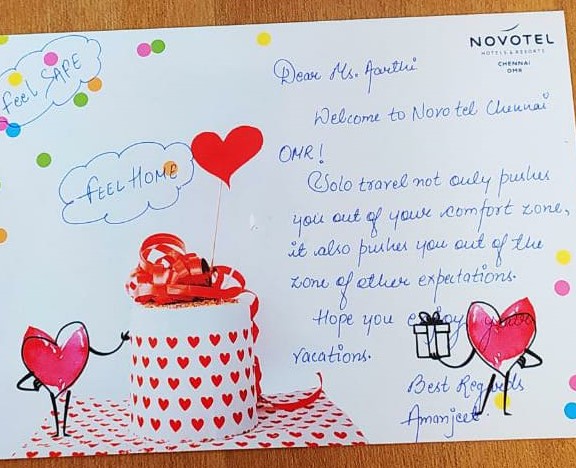 Feel SAFE
FEEL HOME
NOVOTEL
HOTELS & RESORTS
CHENNAI
OMR
Dear Ms. Aarthi
Welcome to Novotel Chennai
OMR!
Solo travel not only pushes
you out of your comfort zone,
it also pushes you out of the
zone of other expectations.
Hope you enjoy your
vacations.
Best Regards
Amanjeet